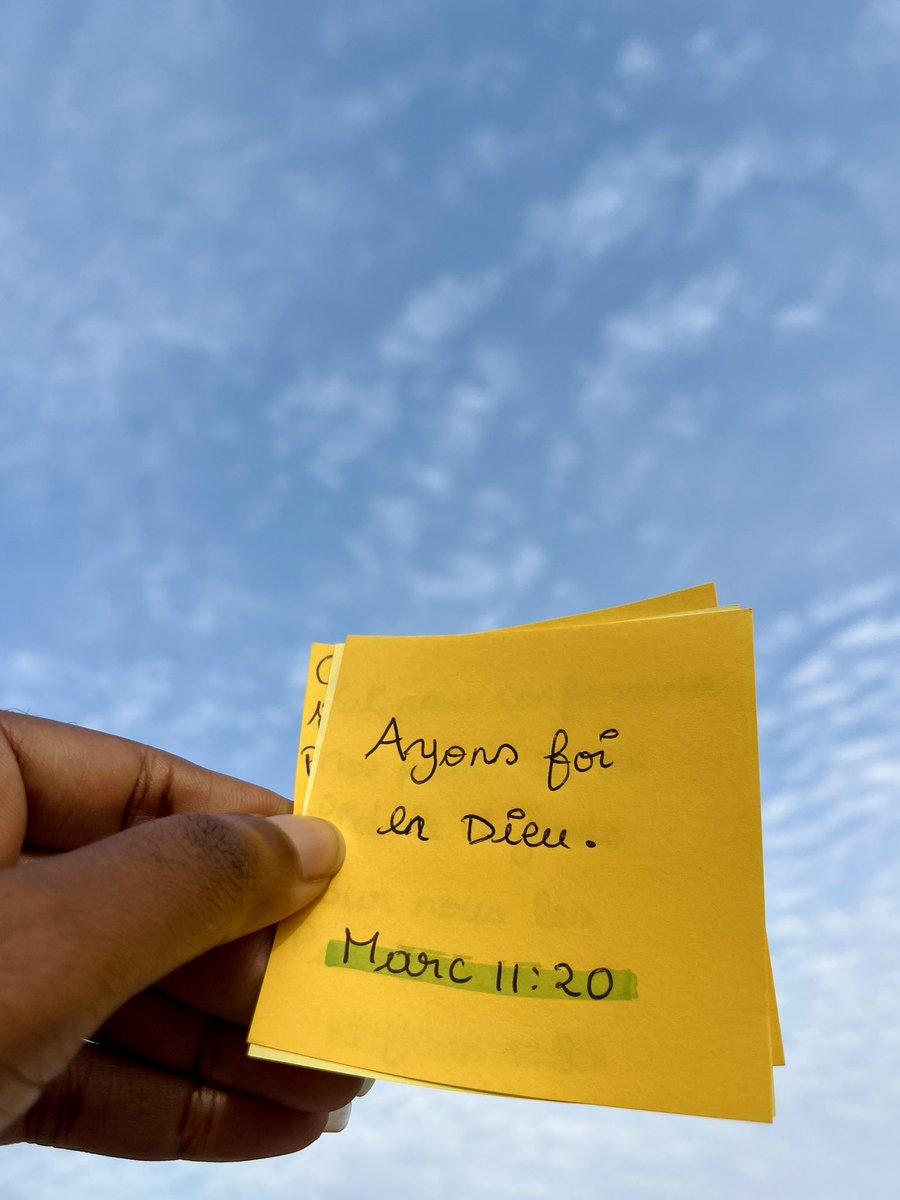 Ayons foi
en Dieu.
Marc 11:20